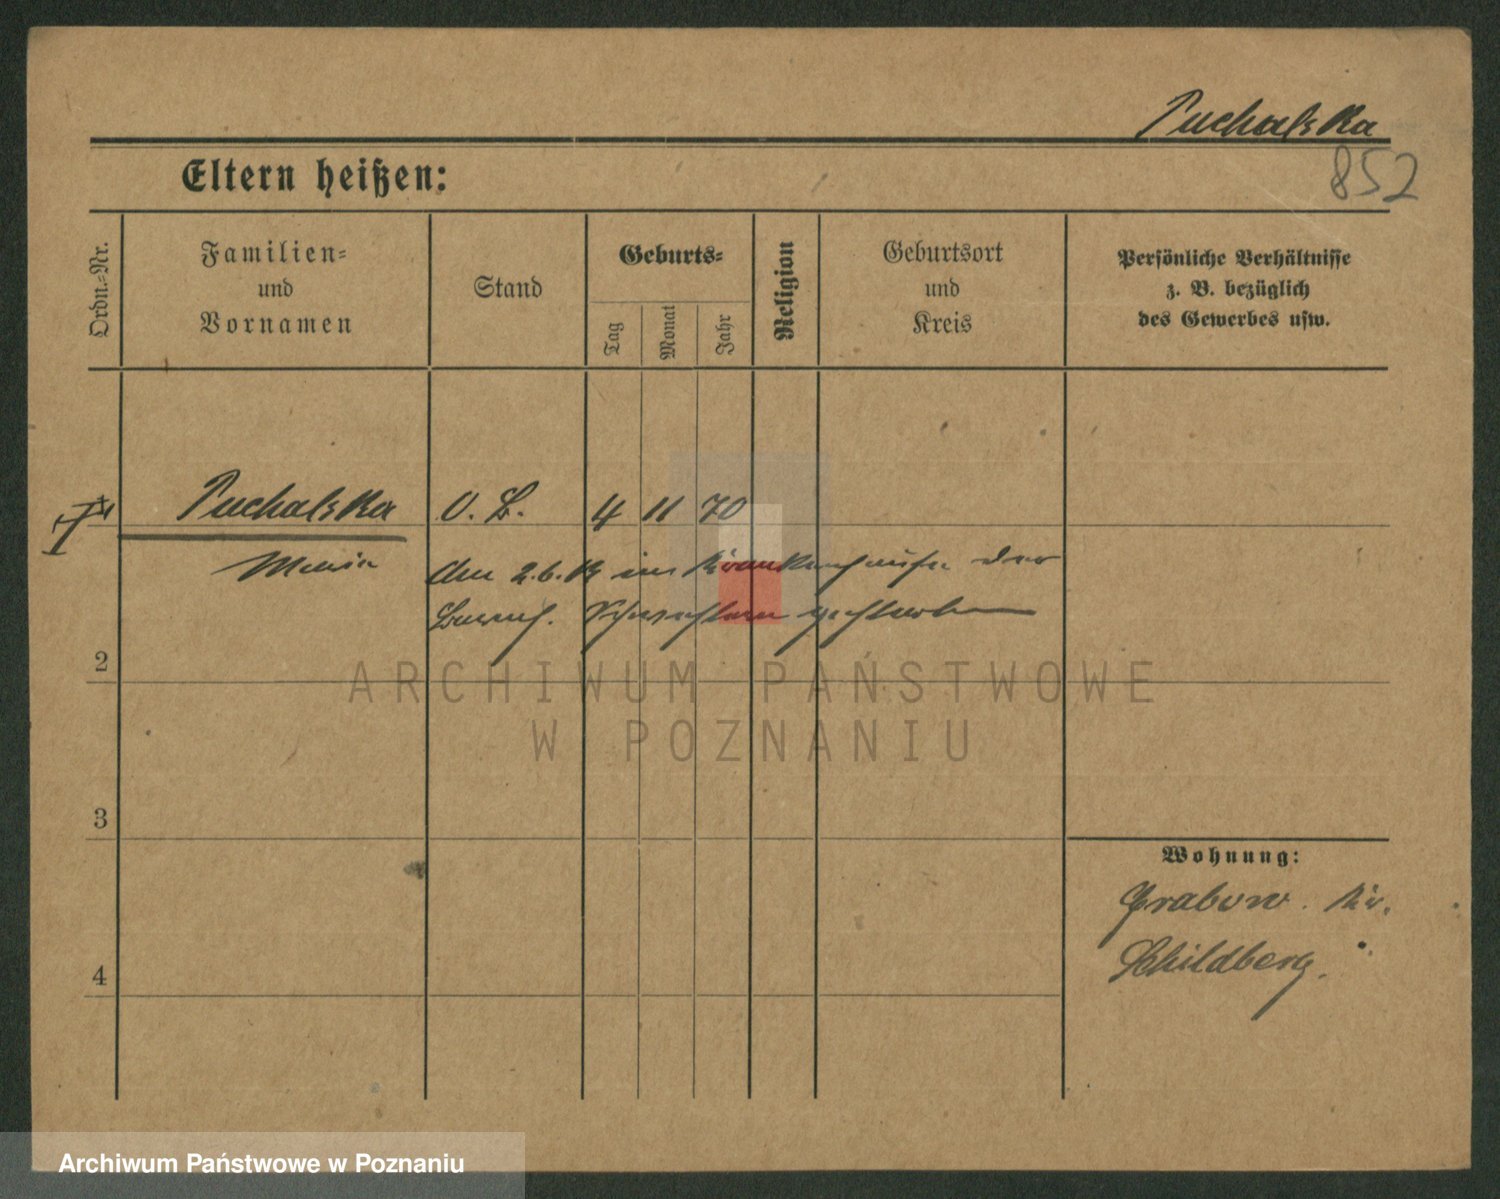 Puchalska
852
Eltern heißen:
Ordn.-Nr.
Familien-
und
Vornamen
Stand
Geburts-
Tag
Monat
Jahr
Religion
Geburtsort
und
Kreis
Persönliche Verhältnisse
z. B. bezüglich
des Gewerbes usw.
Puchalska O. B. 4 11 70
Maria
Am 2.6.13 im Krankenhause der
Barmh. Schwestern gestorben
2
3
4
Wohnung:
Grabow. Kr.
Schildberg.
ARCHIWUM PAŃSTWOWE
W POZNANIU
Archiwum Państwowe w Poznaniu